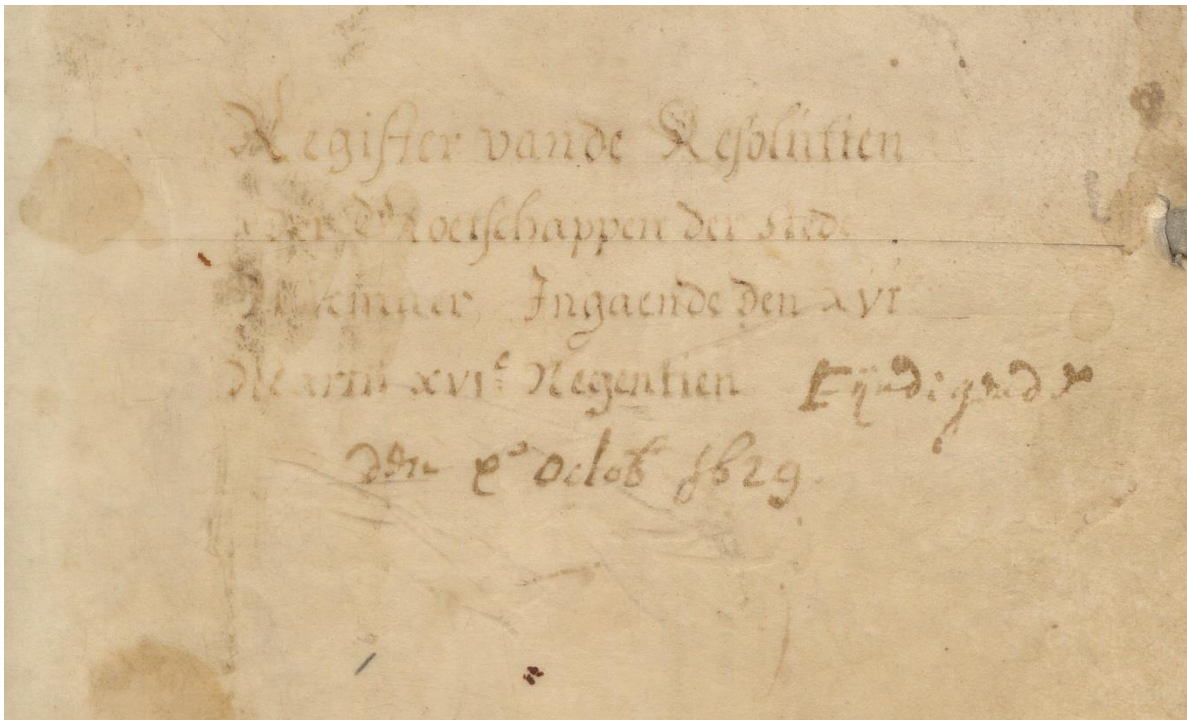 Register vande Resolutien
der Vroetschappen der Stede
Alckmaer, Ingaende den xvi
Martii xvi.c Negentien Eyndigende
den x.o Octob 1629